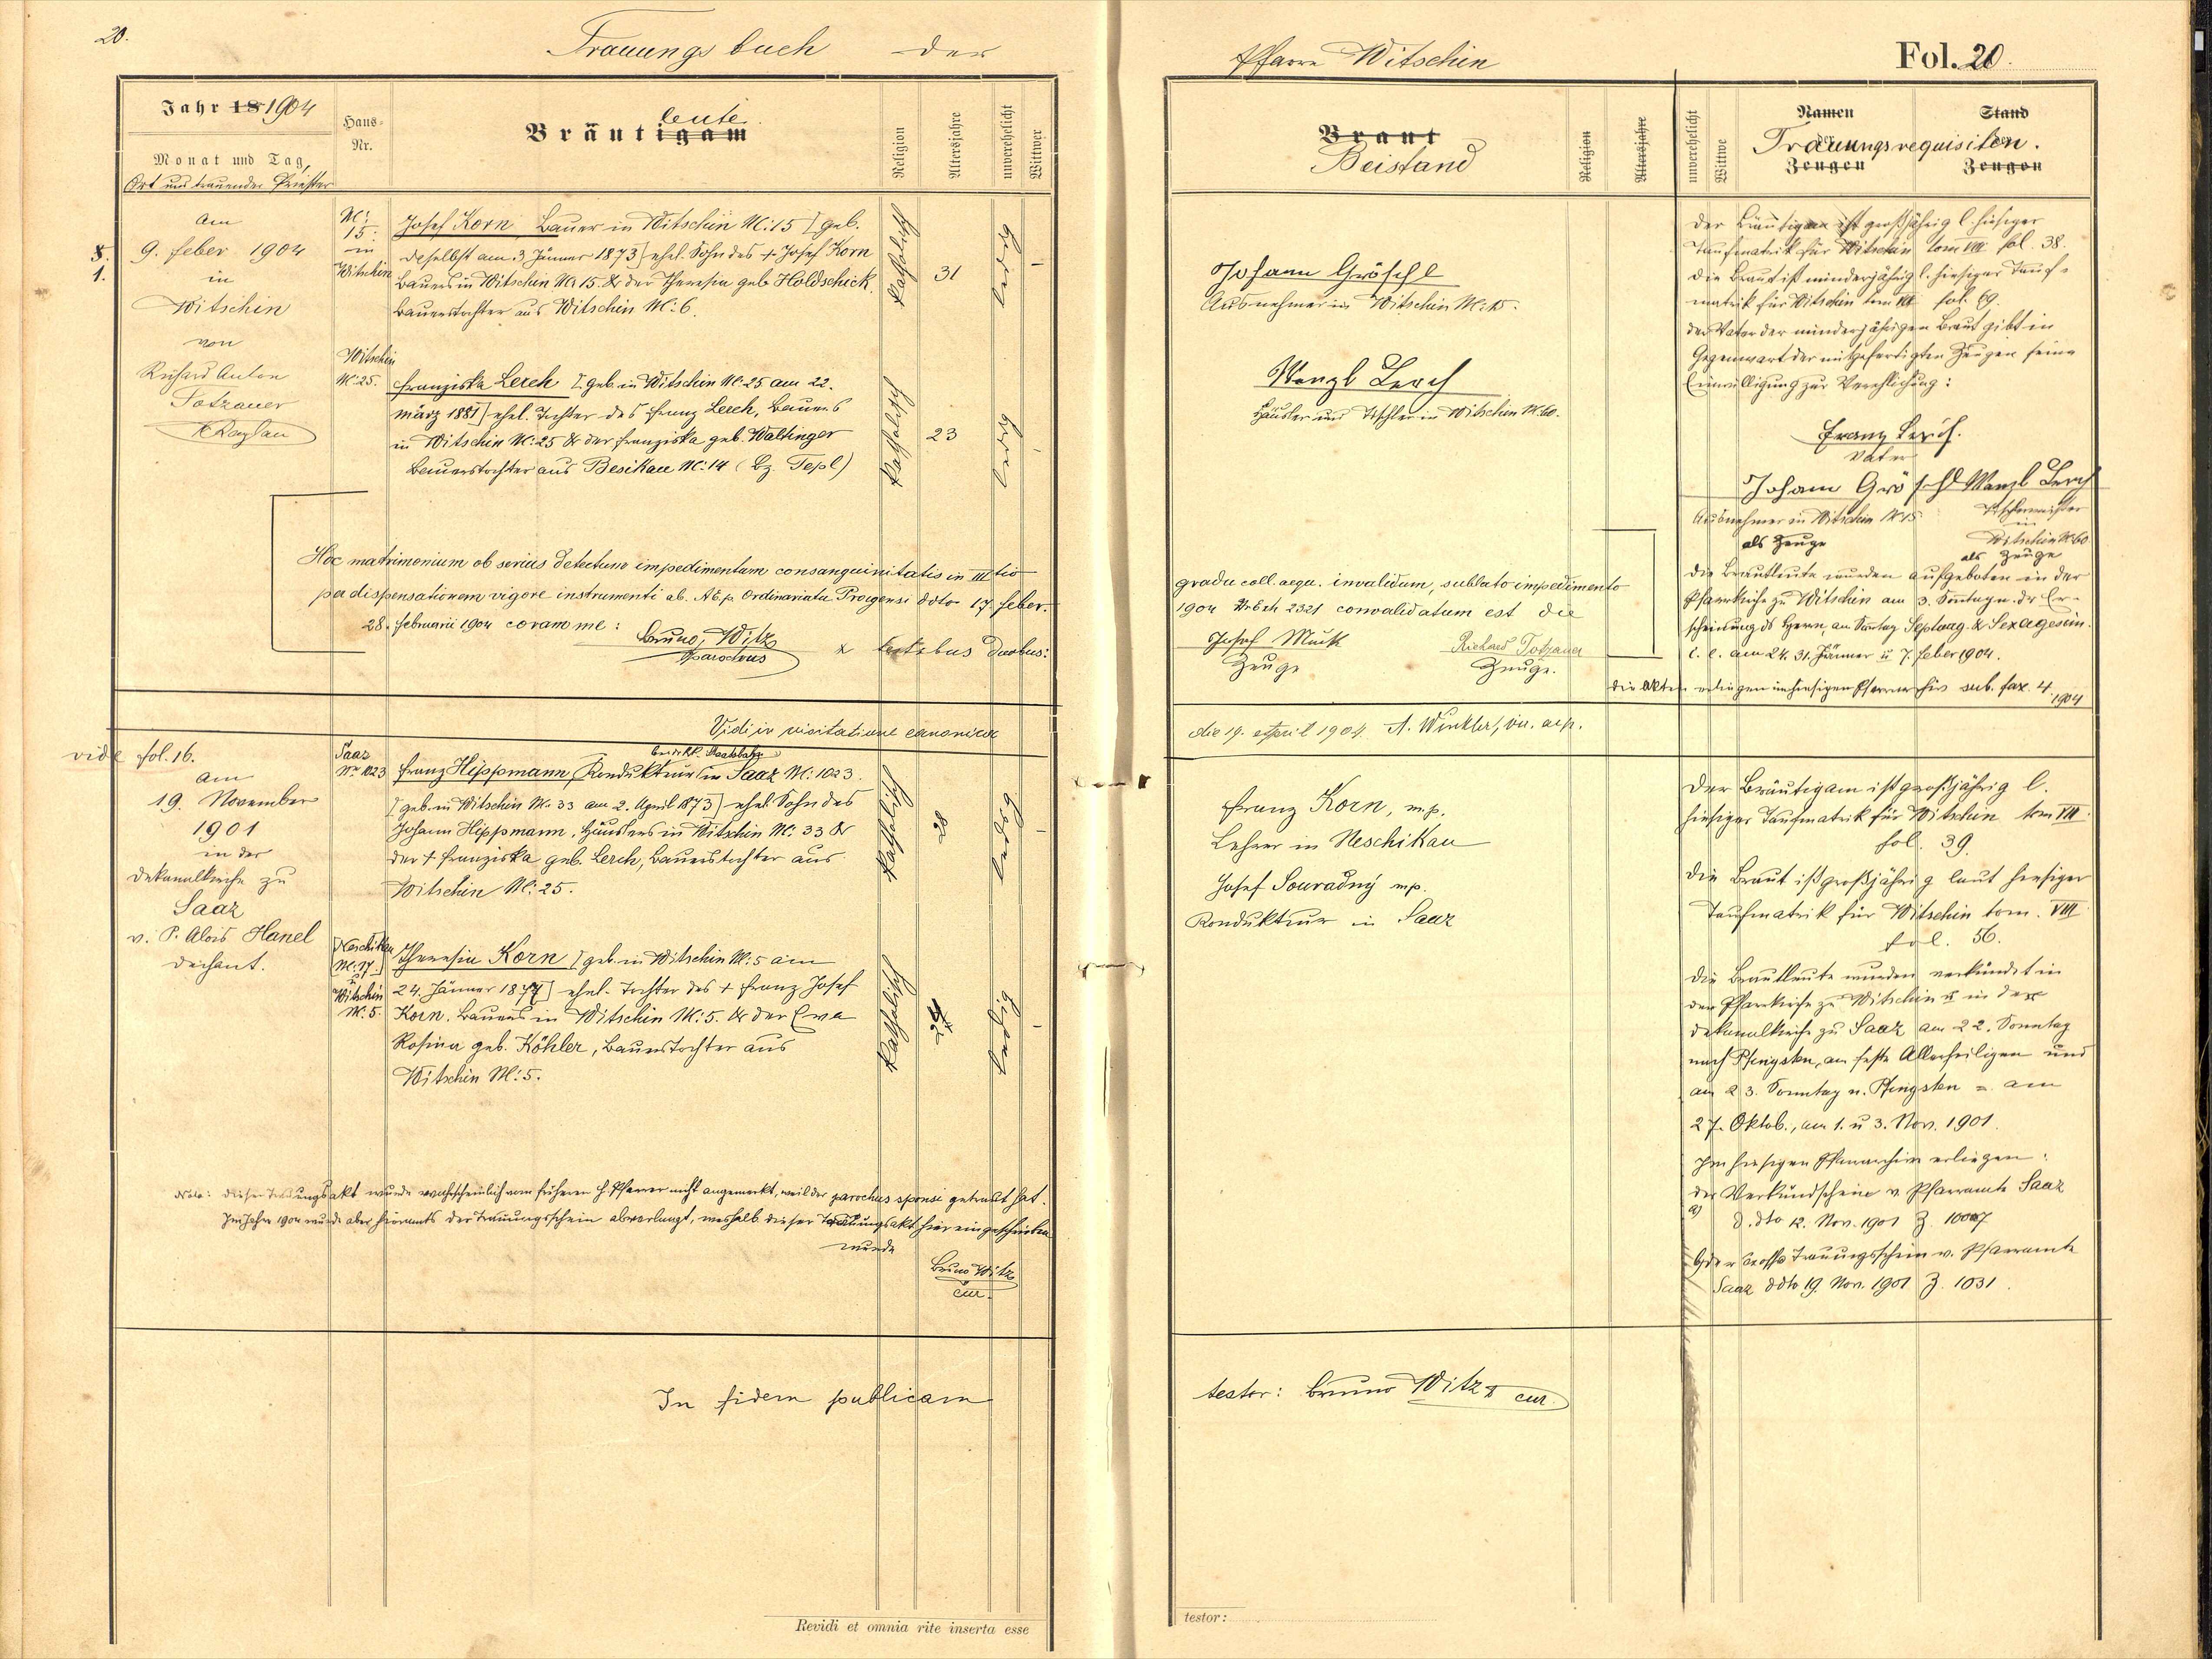 20.
Trauungsbuch der
Jahr 18 1904
Monat und Tag,
Ort und trauender Priester
Haus-
Nr.
Bräutigam
leute.
Religion
Altersjahre
unverehelicht
Wittwer
8.
1.
Am
9. Feber 1904
in
Witschin
von
Richard Anton
Totzauer
Kaplan
N:
15.
in
Witschin
Josef Korn Bauer in Witschin N: 15 [geb.
daselbst am 3 Jänner 1873] ehel. Sohn des + Josef Korn
Bauers in Witschin N: 15. & der Theresia geb. Holdschick,
Bauerstochter aus Witschin N: 6.
katholisch
31
ledig
–
Witschin
N: 25.
Franziska Lerch [geb. in Witschin N: 25 am 22.
März 1881] ehel. Tochter des Franz Lerch, Bauers
in Witschin N: 25 & der Franziska geb. Waltinger
Bauerstochter aus Besikau N: 14 (Bz. Tepl)
katholisch
23
ledig
Hoc matrimonium ob serius detectum impedimentum consanguinitatis in III tio
per dispensationem vigore instrumenti ab. A.E.p. Ordinariatu Pragensi ddto 17. Feber.
28. Februarii 1904 coram me:
Bruno Witz
parochus
& testibus duobus:
Vidi in visitatione canonica
vide fol. 16.
am
19. November
1901
in der
Dekanalkirche zu
Saaz
v. P. Alois Hanel
Dechant.
Saaz
N: 1023
bei d. k.k. Staatsbahn
Franz Hippmann, Kondukteur in Saaz N: 1023.
[geb. in Witschin N: 33 am 2. April 1873] ehel. Sohn des
Johann Hippmann, Häuslers in Witschin N: 33 &
der + Franziska geb. Lerch, Bauerstochter aus
Witschin N: 25.
katholisch
28
ledig
–
[Neschikau
N: 17.]
u.
Witschin
N: 5.
Theresia Korn [geb. in Witschin N: 5 am
24. Jänner 1877] ehel. Tochter des + Franz Josef
Korn, Bauers in Witschin N: 5. & der Eva
Rosina geb. Köhler, Bauerstochter aus
Witschin N: 5.
katholisch
24
ledig
–
Nota: Dieser Trauungsakt wurde wahrscheinlich vom früheren H. Pfarrer nicht angemerkt, weil der parochus sponsi getraut hat.
Im Jahre 1904 wurde aber hieramts der Trauungsschein abverlangt, weshalb dieser Trauungsakt hier eingeschrieben
wurde
Bruno Witz
cur.
In fidem publicam
Revidi et omnia rite inserta esse
Pfarre Witschin
Fol. 20.
Braut
Beistand
Religion
Altersjahre
unverehelicht
Wittwe
Namen
der
Zeugen
Stand
der
Zeugen
Trauungsrequisiten.
Johann Gröschl
Ausnehmer in Witschin N: 15.
Wenzl Lerch
Häusler und Tischler in Witschin N: 60.
gradu coll. aequ. invalidum, sublato impedimento
1904 Nr Exh 2321 convalidatum est die
Josef Muck
Zeuge
Richard Totzauer
Zeuge.
Der Bräutigam ist großjährig l. hiesiger
Taufmatrik für Witschin tom VIII fol. 38.
Die Braut ist minderjährig l. hiesiger Tauf-
matrik für Witschin tom VIII fol. 69.
Der Vater der minderjährigen Braut gibt in
Gegenwart der mitgefertigten Zeugen seine
Einwilligung zur Verehlichung:
Franz Lerch.
Vater
Johann Gröschl Wenzl Lerch
Ausnehmer in Witschin N: 15
als Zeuge
Tischlermeister
in
Witschin N: 60
als Zeuge
Die Brautleute wurden aufgeboten in der
Pfarrkirche zu Witschin am 3. Sonntage n. d. Er-
scheinung des Herrn, am Sonntag Septuag. & Sexagesim.
l. c. am 24. 31. Jänner u 7. Feber 1904.
Die Akten erliegen im hiesigen Pfarrarchiv sub. fax. 4 1904
die 19. April 1904. A. Winkler, vic. aep.
Franz Korn, m.p.
Lehrer in Neschikau
Josef Souradný m.p.
Kondukteur in Saaz
Der Bräutigam ist großjährig l.
hiesiger Taufmatrik für Witschin tom VIII.
fol. 39.
Die Braut ist großjährig laut hiesiger
Taufmatrik für Witschin tom. VIII
fol. 56.
Die Brautleute wurden verkündet in
der Pfarrkirche zu Witschin u in der
Dekanalkirche zu Saaz am 22. Sonntag
nach Pfingsten, am Feste Allerheiligen und
am 23. Sonntag n. Pfingsten = am
27. Oktob., am 1. u 3. Nov. 1901.
Im hiesigen Pfarrarchiv erliegen:
a) der Verkündschein v. Pfarramte Saaz
d. dto 12. Nov. 1901 Z.
b) der Trauungsschein v. Pfarramte
Saaz ddto 19. Nov. 1901 Z. 1031.
testor: Bruno Witz cur.
testor: